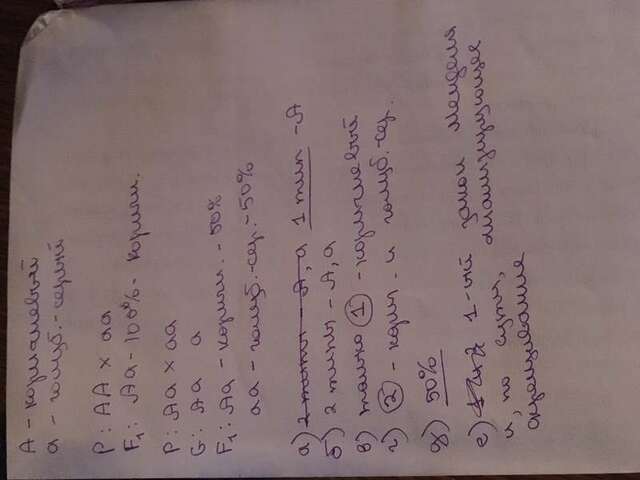 А - коричневый
а - голуб.-серый
P: АА × аа
F₁: Аа - 100% - коричн.
P: Аа × аа
G: Аа а
F₁: Аа - коричн. - 50%
аа - голуб.-сер. - 50%
а) 2 типы - А, а 1 тип - А
б) 2 типы - А, а
в) только 1 - коричневый
г) 2 - корич. и голуб.-сер.
д) 50%
е) 1-ый закон Менделя
и, по сути, анализирующее
скрещивание